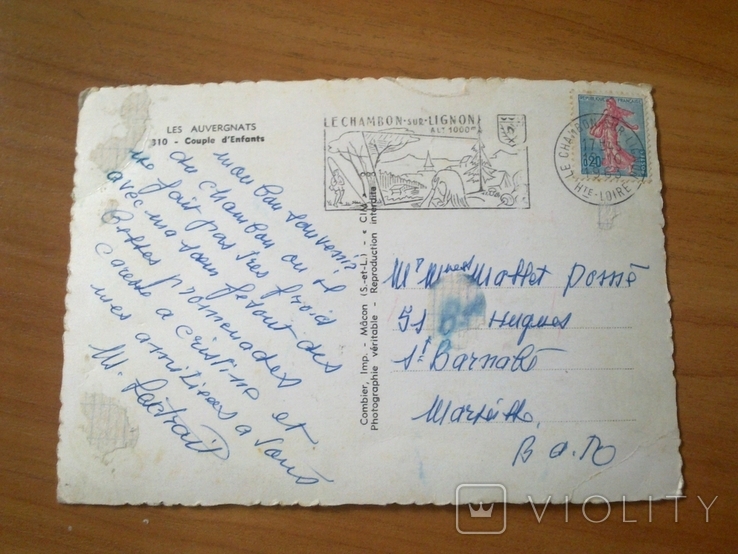 LES AUVERGNATS
310 - Couple d'Enfants
mon bon souvenir
du chambon ou il
ne fait pas très froid
avec ma sœur fevont des
Belles promenades
caresse a cristine et
mes amitiées a vous
M.
Combier, Imp. - Mâcon (S.-et-L.) - « CIM »
Photographie véritable - Reproduction interdite
LE CHAMBON-SUR-LIGNON
ALT 1000m
REPUBLIQUE FRANÇAISE
0,20
LE CHAMBON-SUR-LIGNON
HTE-LOIRE
Mr Mmes Mattet
51 Bd Hugues
St Barnabé
Marseille
B d R
VIOLITY